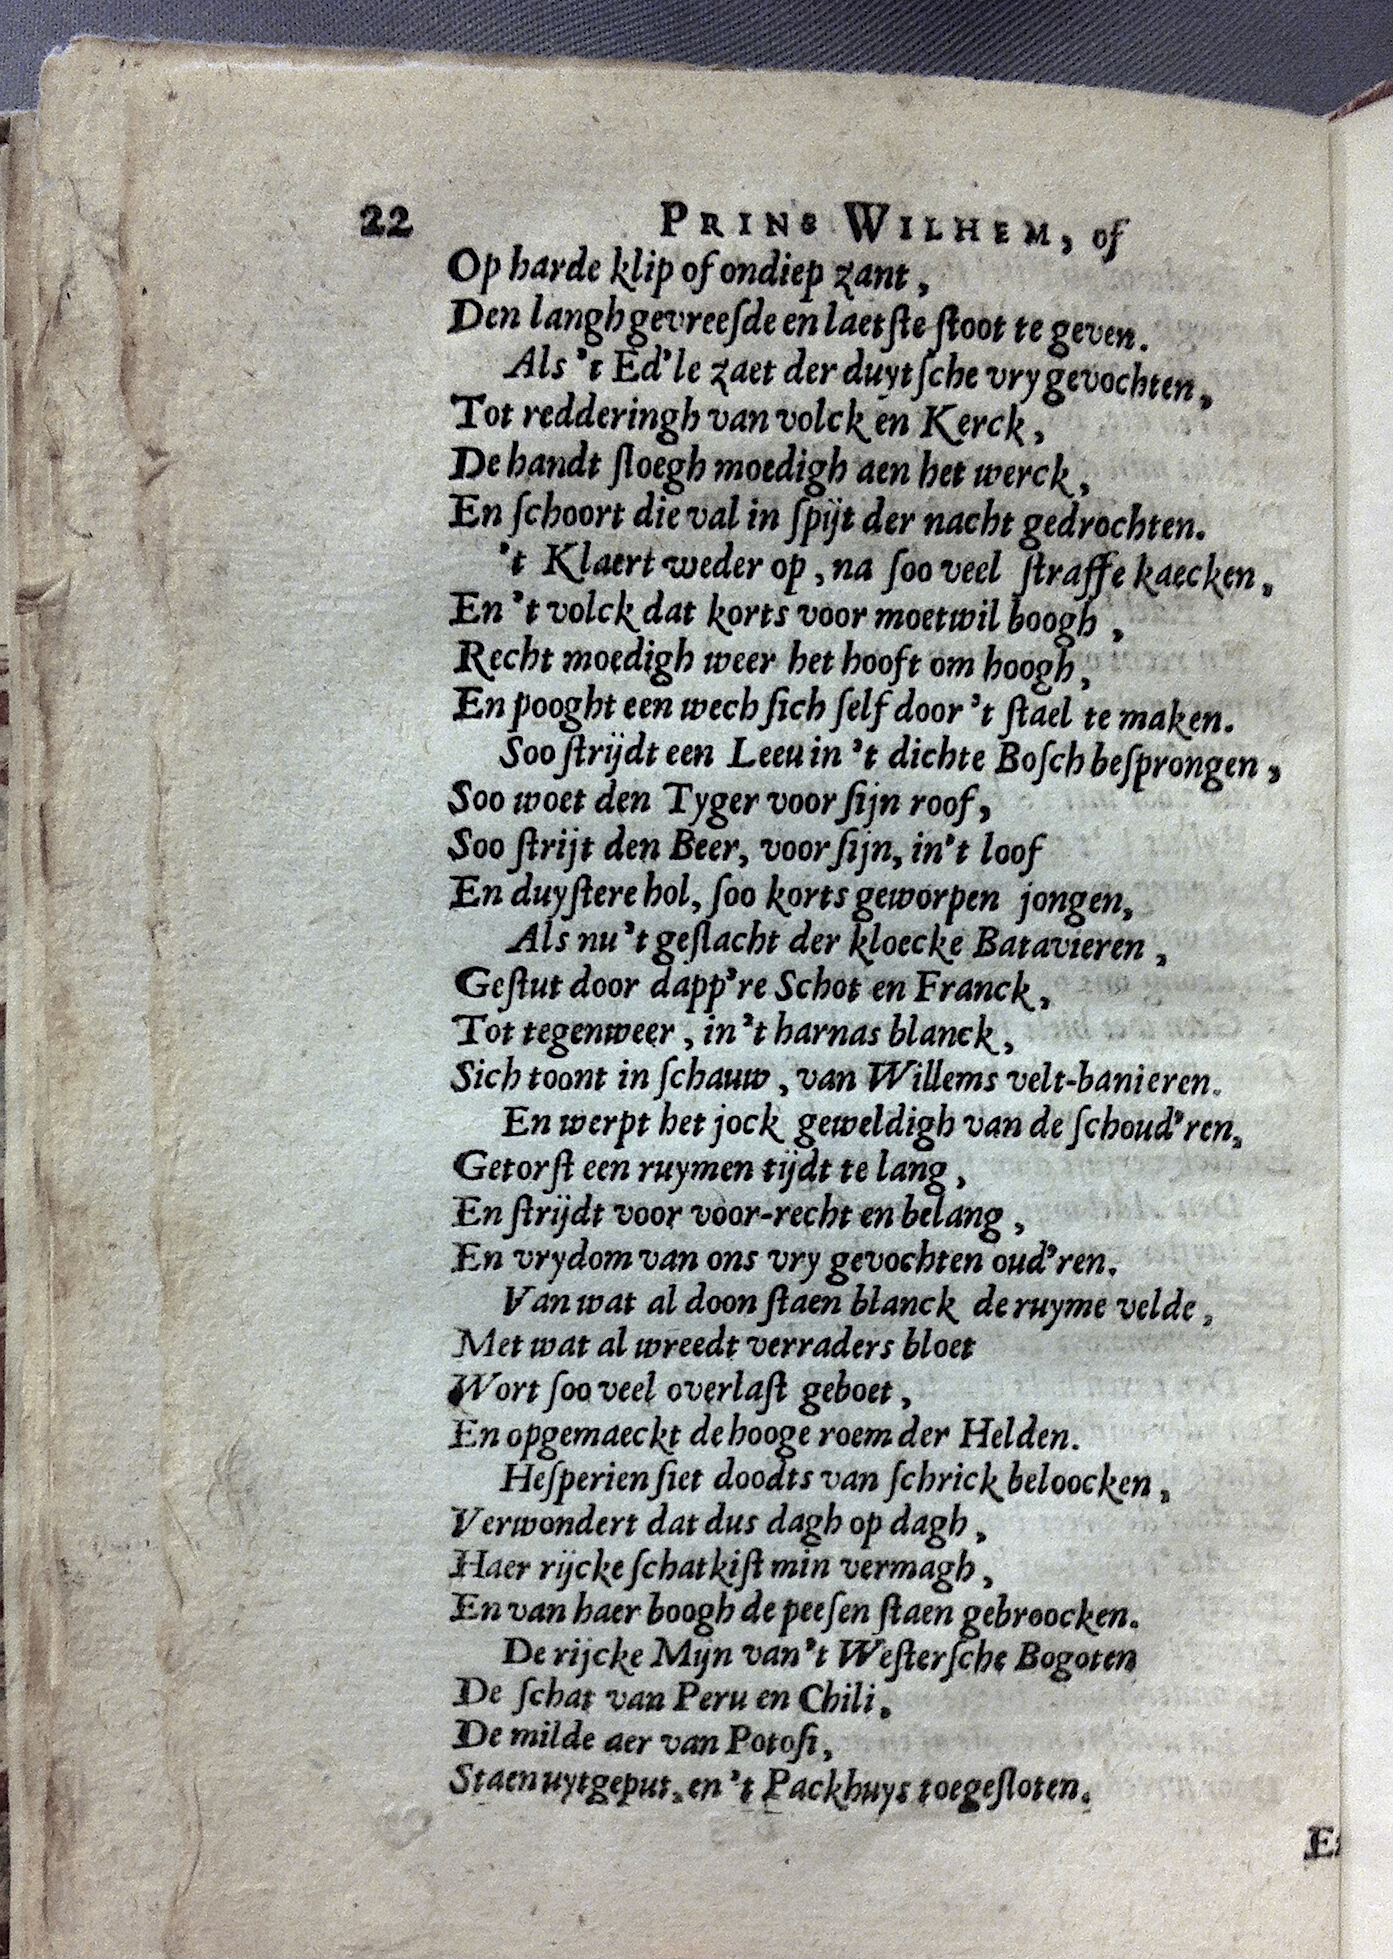 22 PRINS WILHEM, of
Op harde klip of ondiep zant,
Den langh gevreeſde en laetſte ſtoot te geven.
Als 't Ed'le zaet der duytſche vry gevochten,
Tot redderingh van volck en Kerck,
De handt ſloegh moedigh aen het werck,
En ſchoort die val in ſpijt der nacht gedrochten.
't Klaert weder op, na ſoo veel ſtraffe kaecken,
En 't volck dat korts voor moetwil boogh,
Recht moedigh weer het hooft om hoogh,
En pooght een wech ſich ſelf door 't ſtael te maken.
Soo ſtrijdt een Leeu in 't dichte Boſch beſprongen,
Soo woet den Tyger voor ſijn roof,
Soo ſtrijt den Beer, voor ſijn, in't loof
En duyſtere hol, ſoo korts geworpen jongen,
Als nu 't geſlacht der kloecke Batavieren,
Geſtut door dapp're Schot en Franck,
Tot tegenweer, in 't harnas blanck,
Sich toont in ſchauw, van Willems velt-banieren.
En werpt het jock geweldigh van de ſchoud'ren,
Getorſt een ruymen tijdt te lang,
En ſtrijdt voor voor-recht en belang,
En vrydom van ons vry gevochten oud'ren.
Van wat al doon ſtaen blanck de ruyme velde,
Met wat al wreedt verraders bloet
Wort ſoo veel overlaſt geboet,
En opgemaeckt de hooge roem der Helden.
Heſperien ſiet doodts van ſchrick beloocken,
Verwondert dat dus dagh op dagh,
Haer rijcke ſchatkiſt min vermagh,
En van haer boogh de peeſen ſtaen gebroocken.
De rijcke Mijn van't Weſterſche Bogoten
De ſchat van Peru en Chili,
De milde aer van Potoſi,
Staen uytgeput, en 't Packhuys toegeſloten.